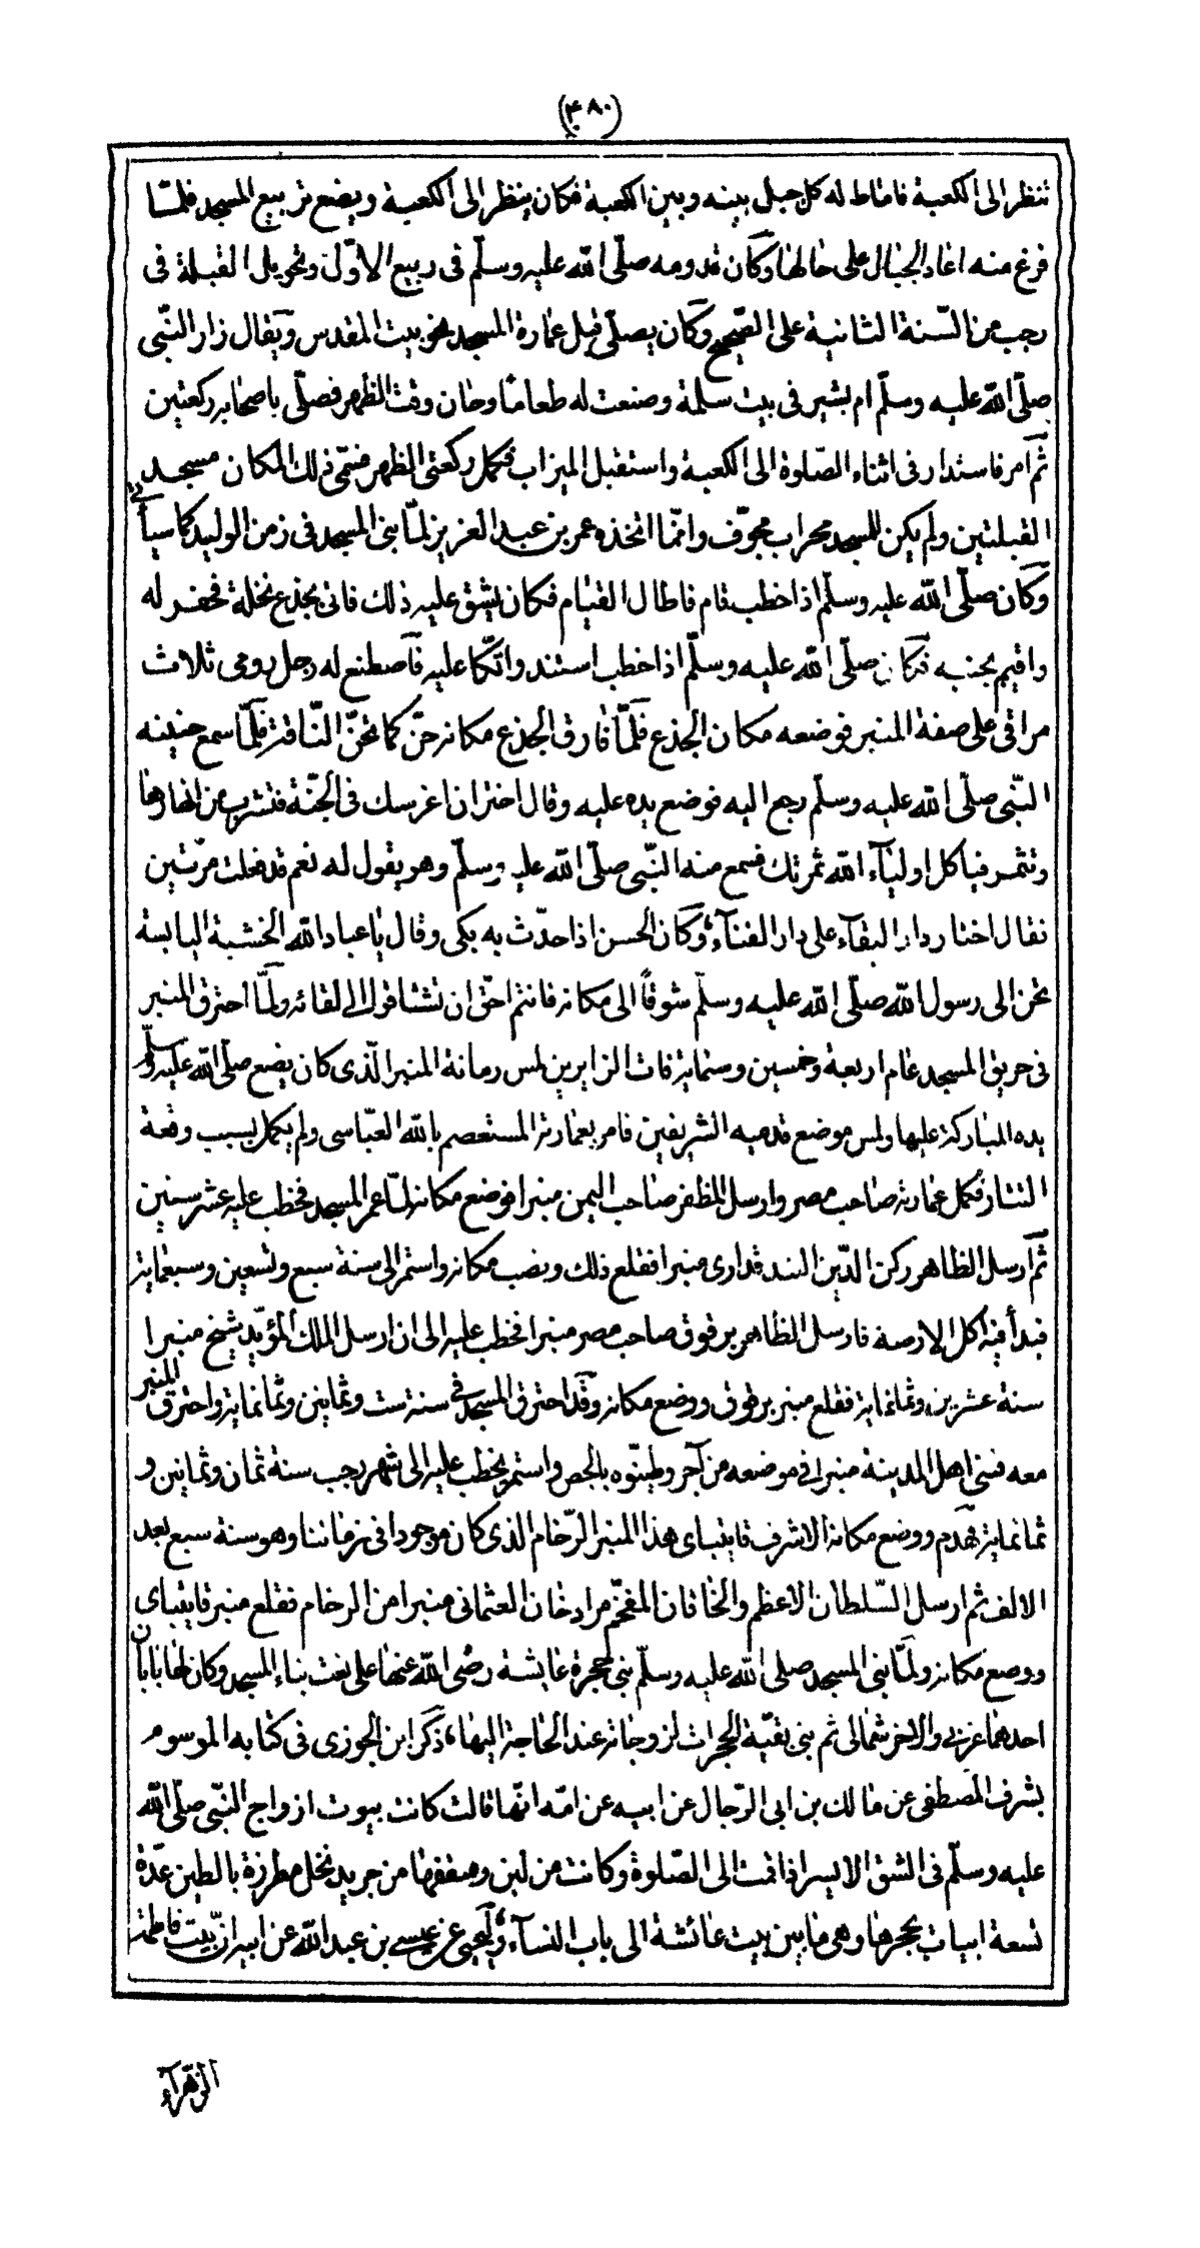 (۴۸۰)
تنظر الى الكعبة فاماط له كل جبل بينه وبين الكعبة فكان ينظر الى الكعبة ويضع تربيع المسجد فلمّا
فرغ منه اعاد الجبال على حالها وكان قدومه صلّى الله عليه وسلّم فى ربيع الاوّل وتحويل القبلة فى
رجب من السّنة الثانية على الصّحيح وكان يصلّى قبل عمارة المسجد نحو بيت المقدس ويقال زار النّبى
صلّى الله عليه وسلّم ام بشير فى بيت سلمة وصنعت له طعاما وحان وقت الظهر فصلّى باصحابه ركعتين
ثمّ امر فاستدار فى اثناء الصّلوة الى الكعبة واستقبل الميزاب فكمل ركعتى الظهر فسمّى ذلك المكان مسجد
القبلتين ولم يكن للمسجد محراب مجوّف وانمّا اتخذه عمر بن عبد العزيز لمّا بنى المسجد فى زمن الوليد كما سيأتى
وكان صلّى الله عليه وسلّم اذا خطب قام فاطال القيام فكان يشق عليه ذلك فاتى بجذع نخلة فحفر له
واقيم بجنبه فكان صلّى الله عليه وسلّم اذا خطب استند واتّكا عليه فاصطنع له رجل رومى ثلاث
مراقى على صفة المنبر فوضعه مكان الجذع فلمّا فارق الجذع مكانه حنّ كما تحنّ النّاقة فلمّا سمع حنينه
النّبى صلّى الله عليه وسلّم رجع اليه فوضع يده عليه وقال اختر ان اغرسك فى الجنّة فتشرب من انهارها
وتثمر فياكل اولياء الله ثمرتك فسمع منه النّبى صلّى الله عليه وسلّم وهو يقول له نعم قد فعلت مرّتين
فقال اختار دار البقاء على دار الفناء وكان الحسن اذا حدّث به بكى وقال يا عباد الله الخشبة اليابسة
تحن الى رسول الله صلّى الله عليه وسلّم شوقاً الى مكانه فانتم احق ان تشتاقوا الى لقائه ولمّا احترق المنبر
فى حريق المسجد عام اربعة وخمسين وستماية فات الزايرين لمس رمانة المنبر الّذى كان يضع صلّى الله عليه وسلّم
يده المباركة عليها ولمس موضع قدميه الشريفين فامر بعمارته المستعصم بالله العبّاسى ولم يكمل بسبب وقعة
التتار فكمل عمارته صاحب مصر وارسل المظفر صاحب اليمن منبرا فوضع مكانه لمّا عمر المسجد فخطب عليه عشر سنين
ثمّ ارسل الظاهر ركن الدّين البندقدارى منبرا فقلع ذلك ونصب مكانه واستمر الى سنة سبع وتسعين وسبعماية
فبدأ فيه اكل الارضة فارسل الظاهر برقوق صاحب مصر منبرا فخطب عليه الى ان ارسل الملك المؤيّد شيخ منبرا
سنة عشرين وثمانماية فقلع منبر برقوق ووضع مكانه وقد احترق المسجد فى سنة ست وثمانين وثمانماية واحترق المنبر
معه فبنى اهل المدينة منبرا فى موضعه من آجر وطيّنوه بالجص واستمر يخطب عليه الى شهر رجب سنة ثمان وثمانين و
ثمانماية فهدم ووضع مكانه الاشرف قايتباى هذا المنبر الرّخام الذى كان موجودا فى زماننا وهو سنة سبع بعد
الالف ثم ارسل السّلطان الاعظم والخاقان المفخّم مراد خان العثمانى منبرا من الرخام فقلع منبر قايتباى
ووضع مكانه ولمّا بنى المسجد صلى الله عليه وسلّم بنى حجرة عايشة رضى الله عنها على نعت بناء المسجد وكان لها بابان
احدهما غربى والاخر شمالى ثم بنى بقيّة الحجرات لزوجاته عند الحاجة اليها، ذكر ابن الجوزى فى كتابه الموسوم
بشرف المصطفى عن مالك بن ابى الرّجال عن ابيه عن امّه انّها قالت كانت بيوت ازواج النّبى صلّى الله
عليه وسلّم فى الشق الايسر اذا قمت الى الصّلوة وكانت من لبن وسقفها من جريد نخل مطرزة بالطين عدّة
تسعة ابيات بحجرها وهى ما بين بيت عائشة الى باب النساء وليحيى عن عيسى بن عبد الله عن ابيه ان بيت فاطمة
الزهرآء